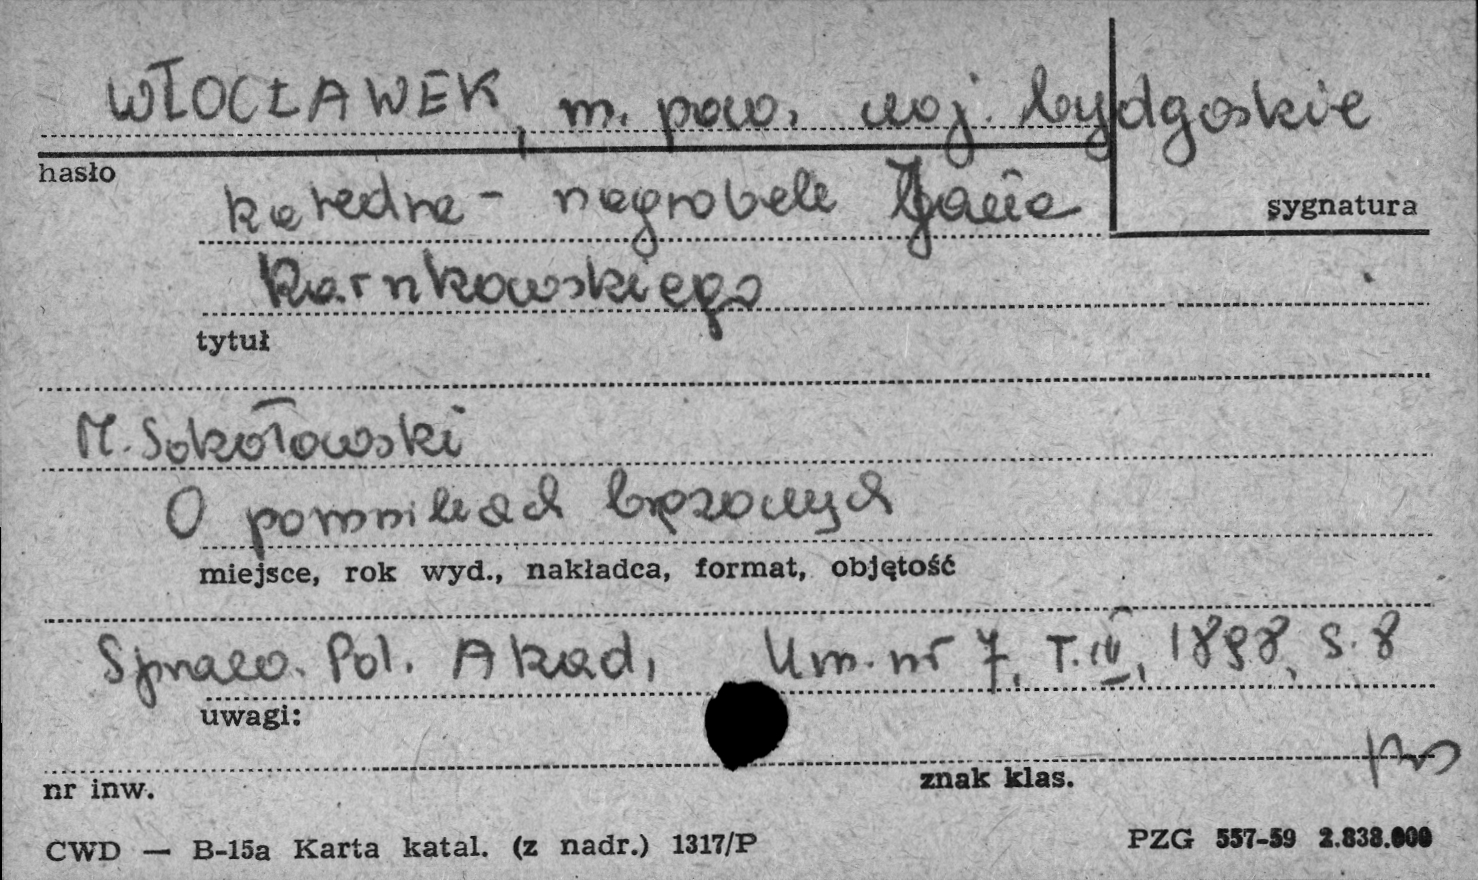 WŁOCŁAWEK, m. pow. woj. bydgoskie
hasło
katedra - nagrobek Jana
sygnatura
Karnkowskiego
tytuł
M. Sokołowski
O pomnikach brązowych
miejsce, rok wyd., nakładca, format, objętość
Spraw. Pol. Akad, Um. nr 7, T. IV, 1898, s. 8
uwagi:
nr inw.
znak klas.
CWD — B-15a Karta katal. (z nadr.) 1317/P
PZG 557-59 2.838.000